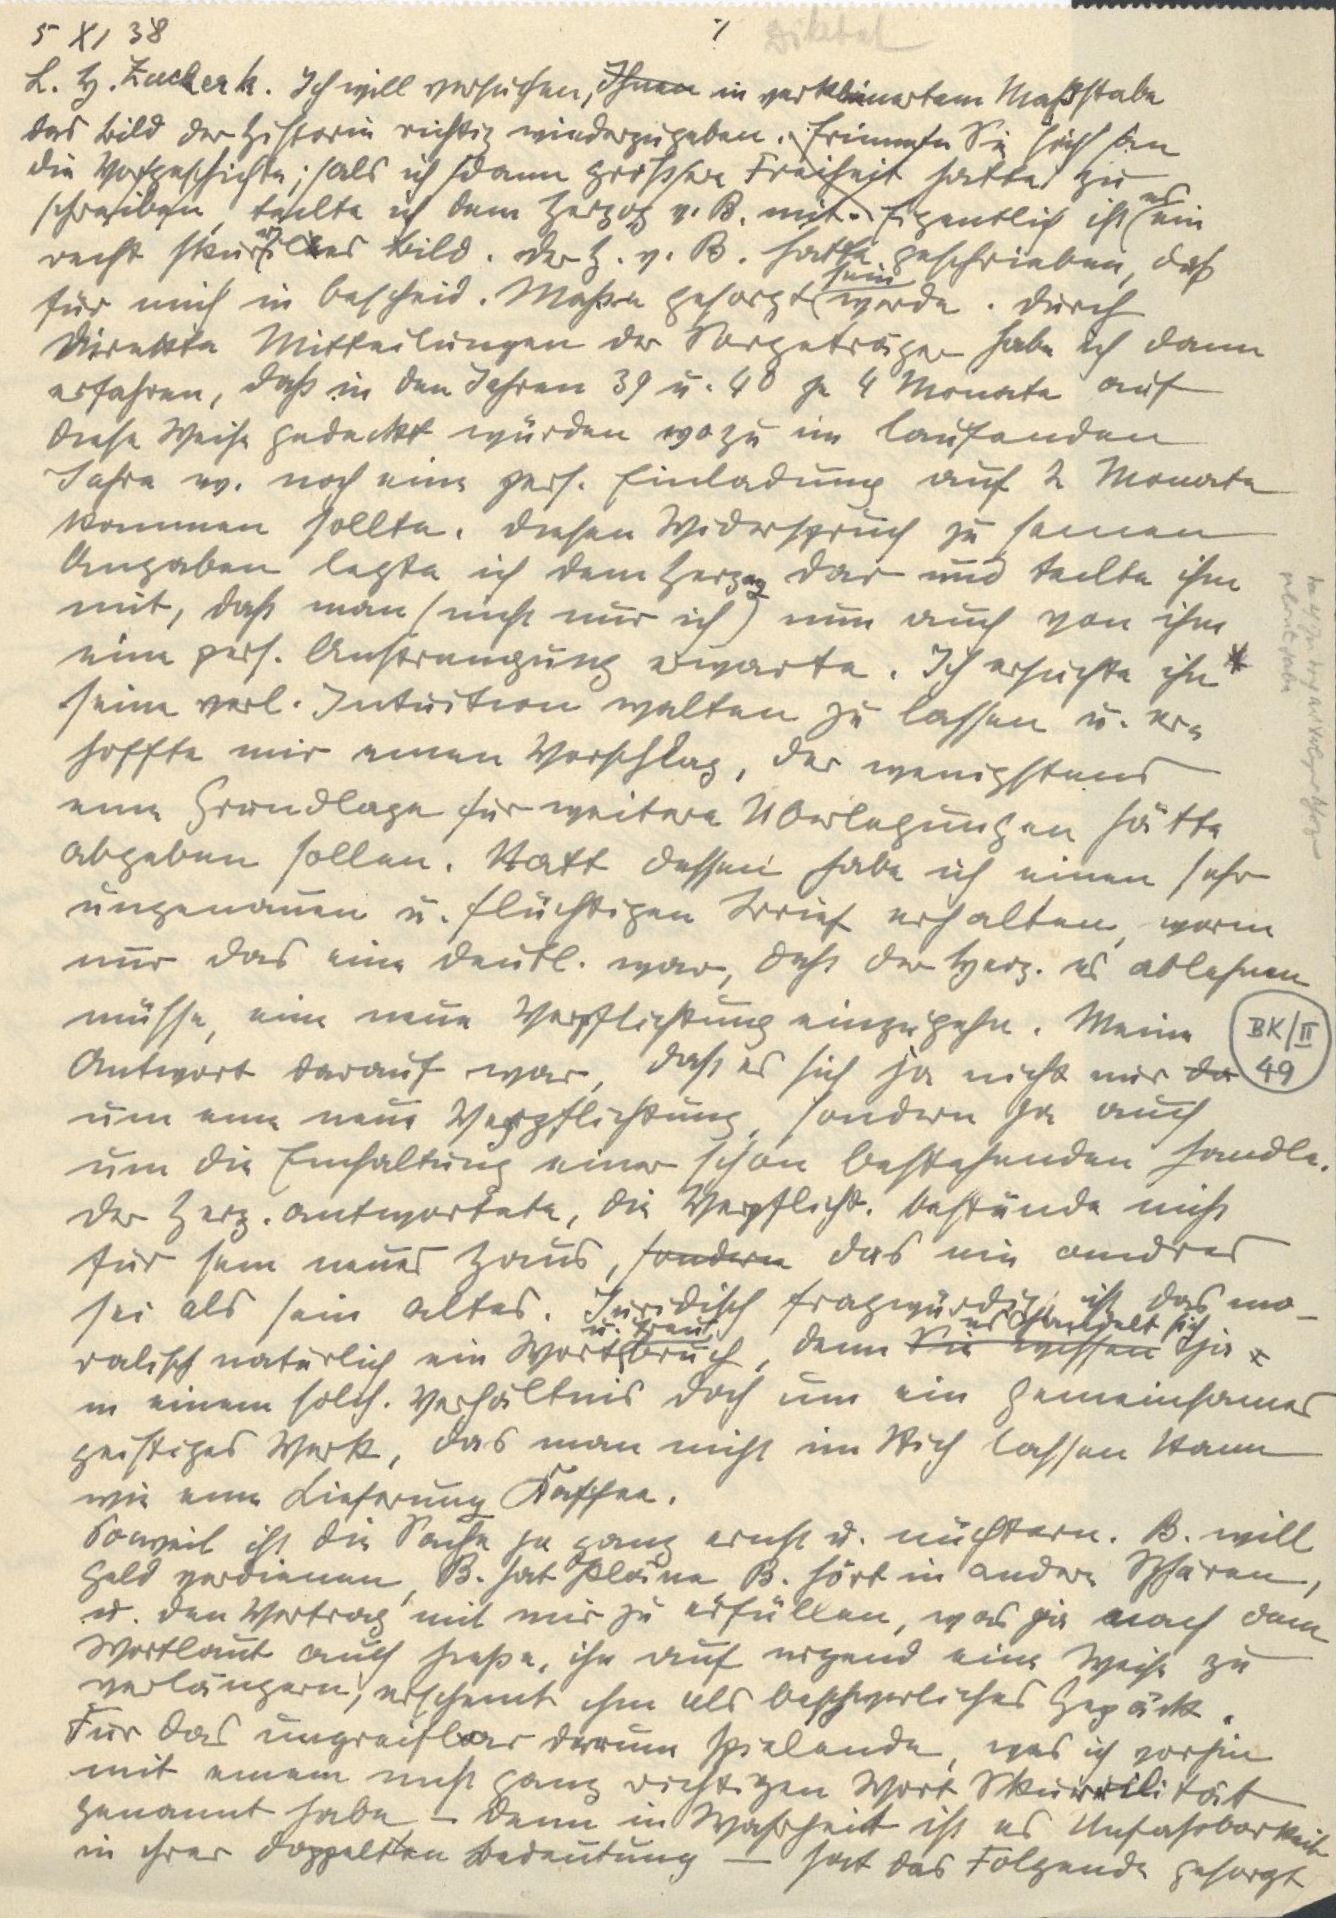 5 XI 38
1
Diktat
L. H. Zuckerk. Ich will versuchen, Ihnen in verkleinertem Maßstabe
das Bild der Historie richtig wiederzugeben. Erinnern Sie sich an
die Vorgeschichte; als ich dann grössere Freiheit hatte zu
schreiben, teilte ich dem Herzog v. B. mit. Eigentlich ist es ein
recht skurriles Bild. Der H. v. B. hatte geschrieben, daß
für mich in bescheid. Maßen gesorgt sein werde. Durch
direkte Mitteilungen der Sorgeträger habe ich dann
erfahren, daß in den Jahren 39 u. 40 je 4 Monate auf
diese Weise gedeckt würden wozu im laufenden
Jahre ev. noch eine pers. Einladung auf 2 Monate
kommen sollte. Diesen Widerspruch zu seinen
Angaben legte ich dem Herzog dar und teilte ihm
mit, daß man (nicht nur ich) nun auch von ihm
eine pers. Anstrengung erwarte. Ich ersuchte ihn *
seine verl. Intuition walten zu lassen u. er-
hoffte mir einen Vorschlag, der wenigstens
eine Grundlage für weitere Überlegungen hätte
abgeben sollen. Statt dessen habe ich einen sehr
ungenauen u. flüchtigen Brief erhalten, worin
nur das eine deutl. war, daß der Herz. es ablehnen
müsse, eine neue Verpflichtung einzugehn. Meine
BK/II
49
Antwort darauf war, daß es sich ja nicht nur da
um eine neue Verpflichtung, sondern ja auch
um die Einhaltung einer schon bestehenden handle.
Der Herz. antwortete, die Verpflicht. bestünde nicht
für sein neues Haus, sondern das ein andres
sei als sein altes. Juridisch fragwürdig, ist das mo-
ralisch natürlich ein Wort- u. Treubruch, denn Sie wissen es handelt sich ja
in einem solch. Verhältnis doch um ein gemeinsames
geistiges Werk, das man nicht im Stich lassen kann
wie eine Lieferung Kaffee.
Soweit ist die Sache ja ganz ernst u. nüchtern. B. will
Geld verdienen, B. hat Pläne, B. hört in andere Sphären,
u. den Vertrag mit mir zu erfüllen, was ja nach dem
Wortlaut auch hieße, ihn auf irgend eine Weise zu
verlängern, erscheint ihm als beschwerliches Gepäck.
Für das ungreifbar darum Spielende, was ich vorhin
mit einem nicht ganz richtigen Wort Skurrilität
genannt habe – denn in Wahrheit ist es Unfaßbarkeit
in ihrer doppelten Bedeutung – hat das Folgende gesorgt